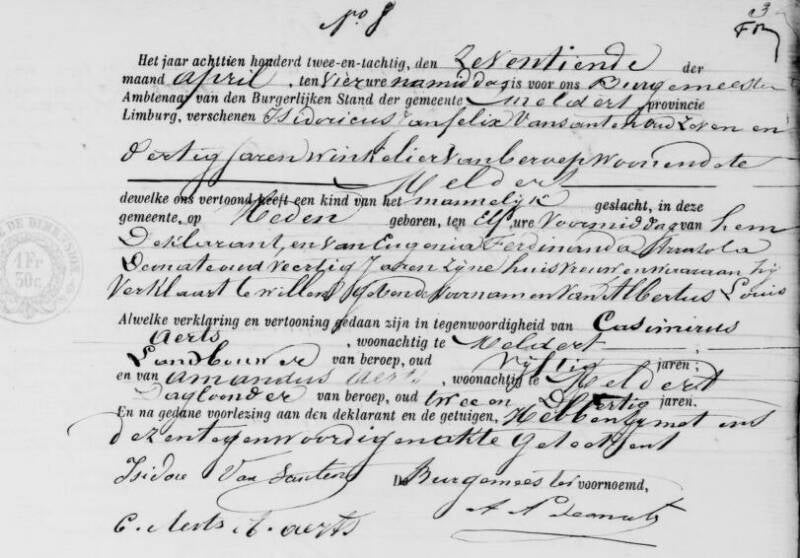 No 8
3
Het jaar achttien honderd twee-en-tachtig, den Zeventiende der
maand april, ten vier ure namiddag is voor ons Burgemeester
Ambtenaar van den Burgerlijken Stand der gemeente Meldert provincie
Limburg, verschenen Isidoricus Jan felix Vansanten oud Zeven en
dertig Jaren Winkelier van beroep Woonende te
Meldert
dewelke ons vertoond heeft een kind van het mannelijk geslacht, in deze
gemeente, op Heden geboren, ten Elf ure Voormiddag van hem
Deklarant, en van Eugenia Ferdinanda
oud Veertig Jaren Zijne huisvrouw en waaraan hij
Verklaart te willen geven de Voornamen van Albertus Louis
Alwelke verklaring en vertooning gedaan zijn in tegenwoordigheid van Casimirus
Aerts, woonachtig te Meldert
Landbouwer van beroep, oud Vijftig jaren;
en van Amandus Aerts, woonachtig te Meldert
Daglooner van beroep, oud twee en Dertig jaren.
En na gedane voorlezing aan den deklarant en de getuigen, Hebben zij met ons
dezen tegenwoordigen akte geteekent
Isidore Van Santen De Burgemeester voornoemd,
C. Aerts A. aerts